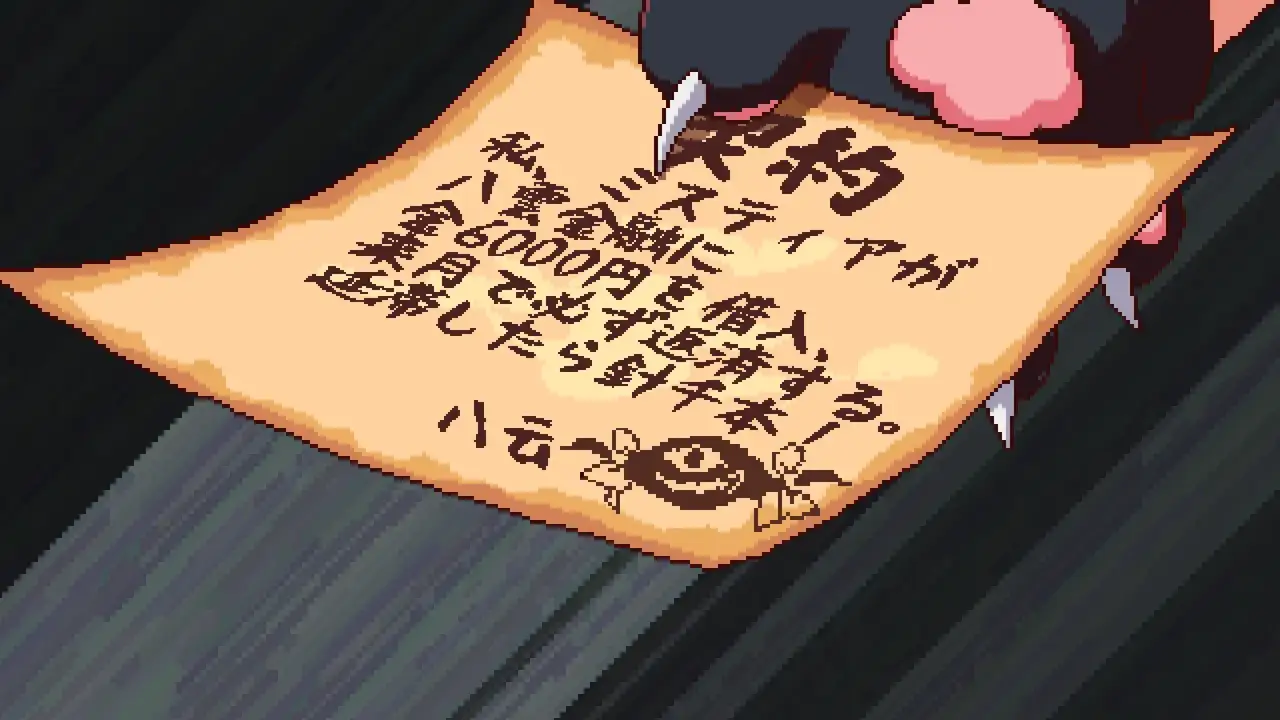 契約
私、ミスティアが
八雲金融に
金6000円を借入、
来月で必ず返済する。
延滞したら針千本
八云